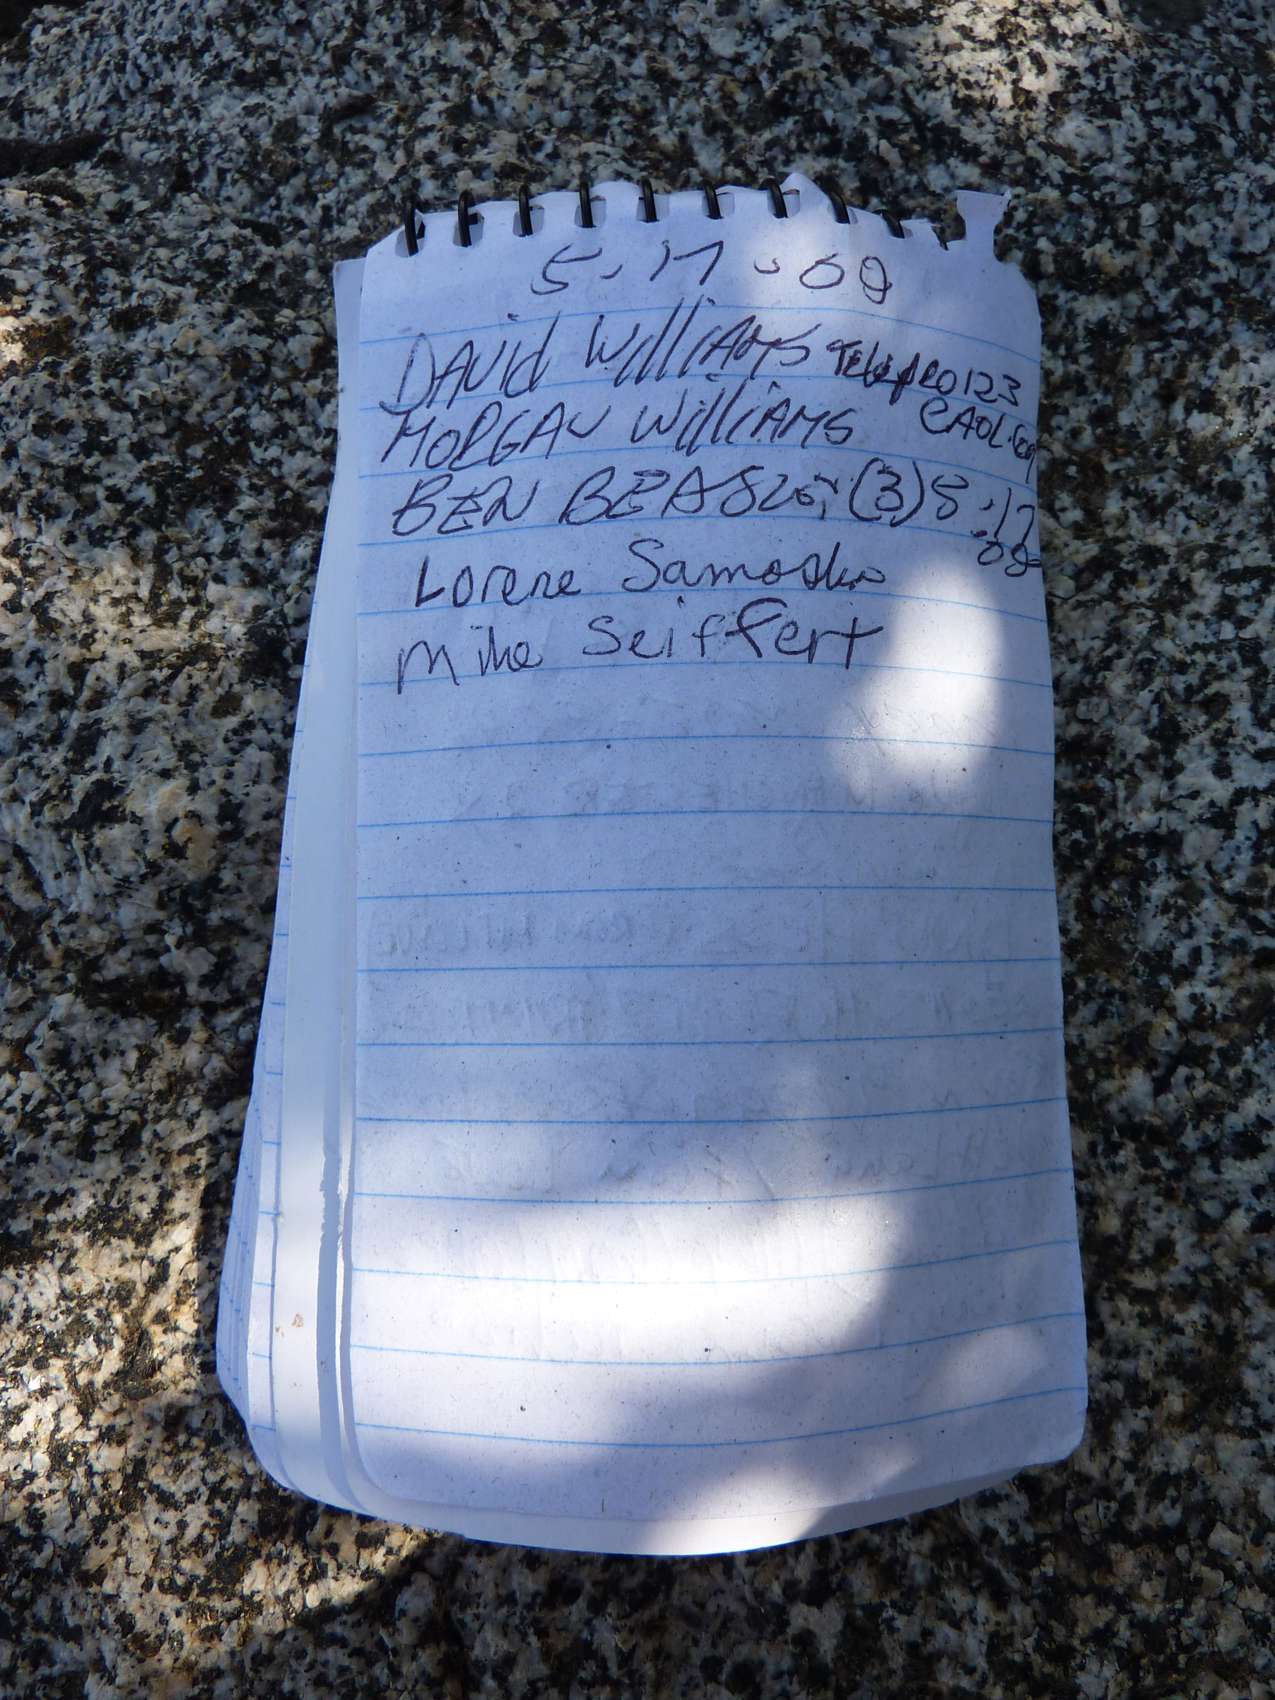 5-17-09
DAVID WilliAMS
TelePRO123
@AOL.Com
MORGAN WilliAMS
BEN BEASLEY (3) 5-17
-09
Lorene
Mike Seiffert